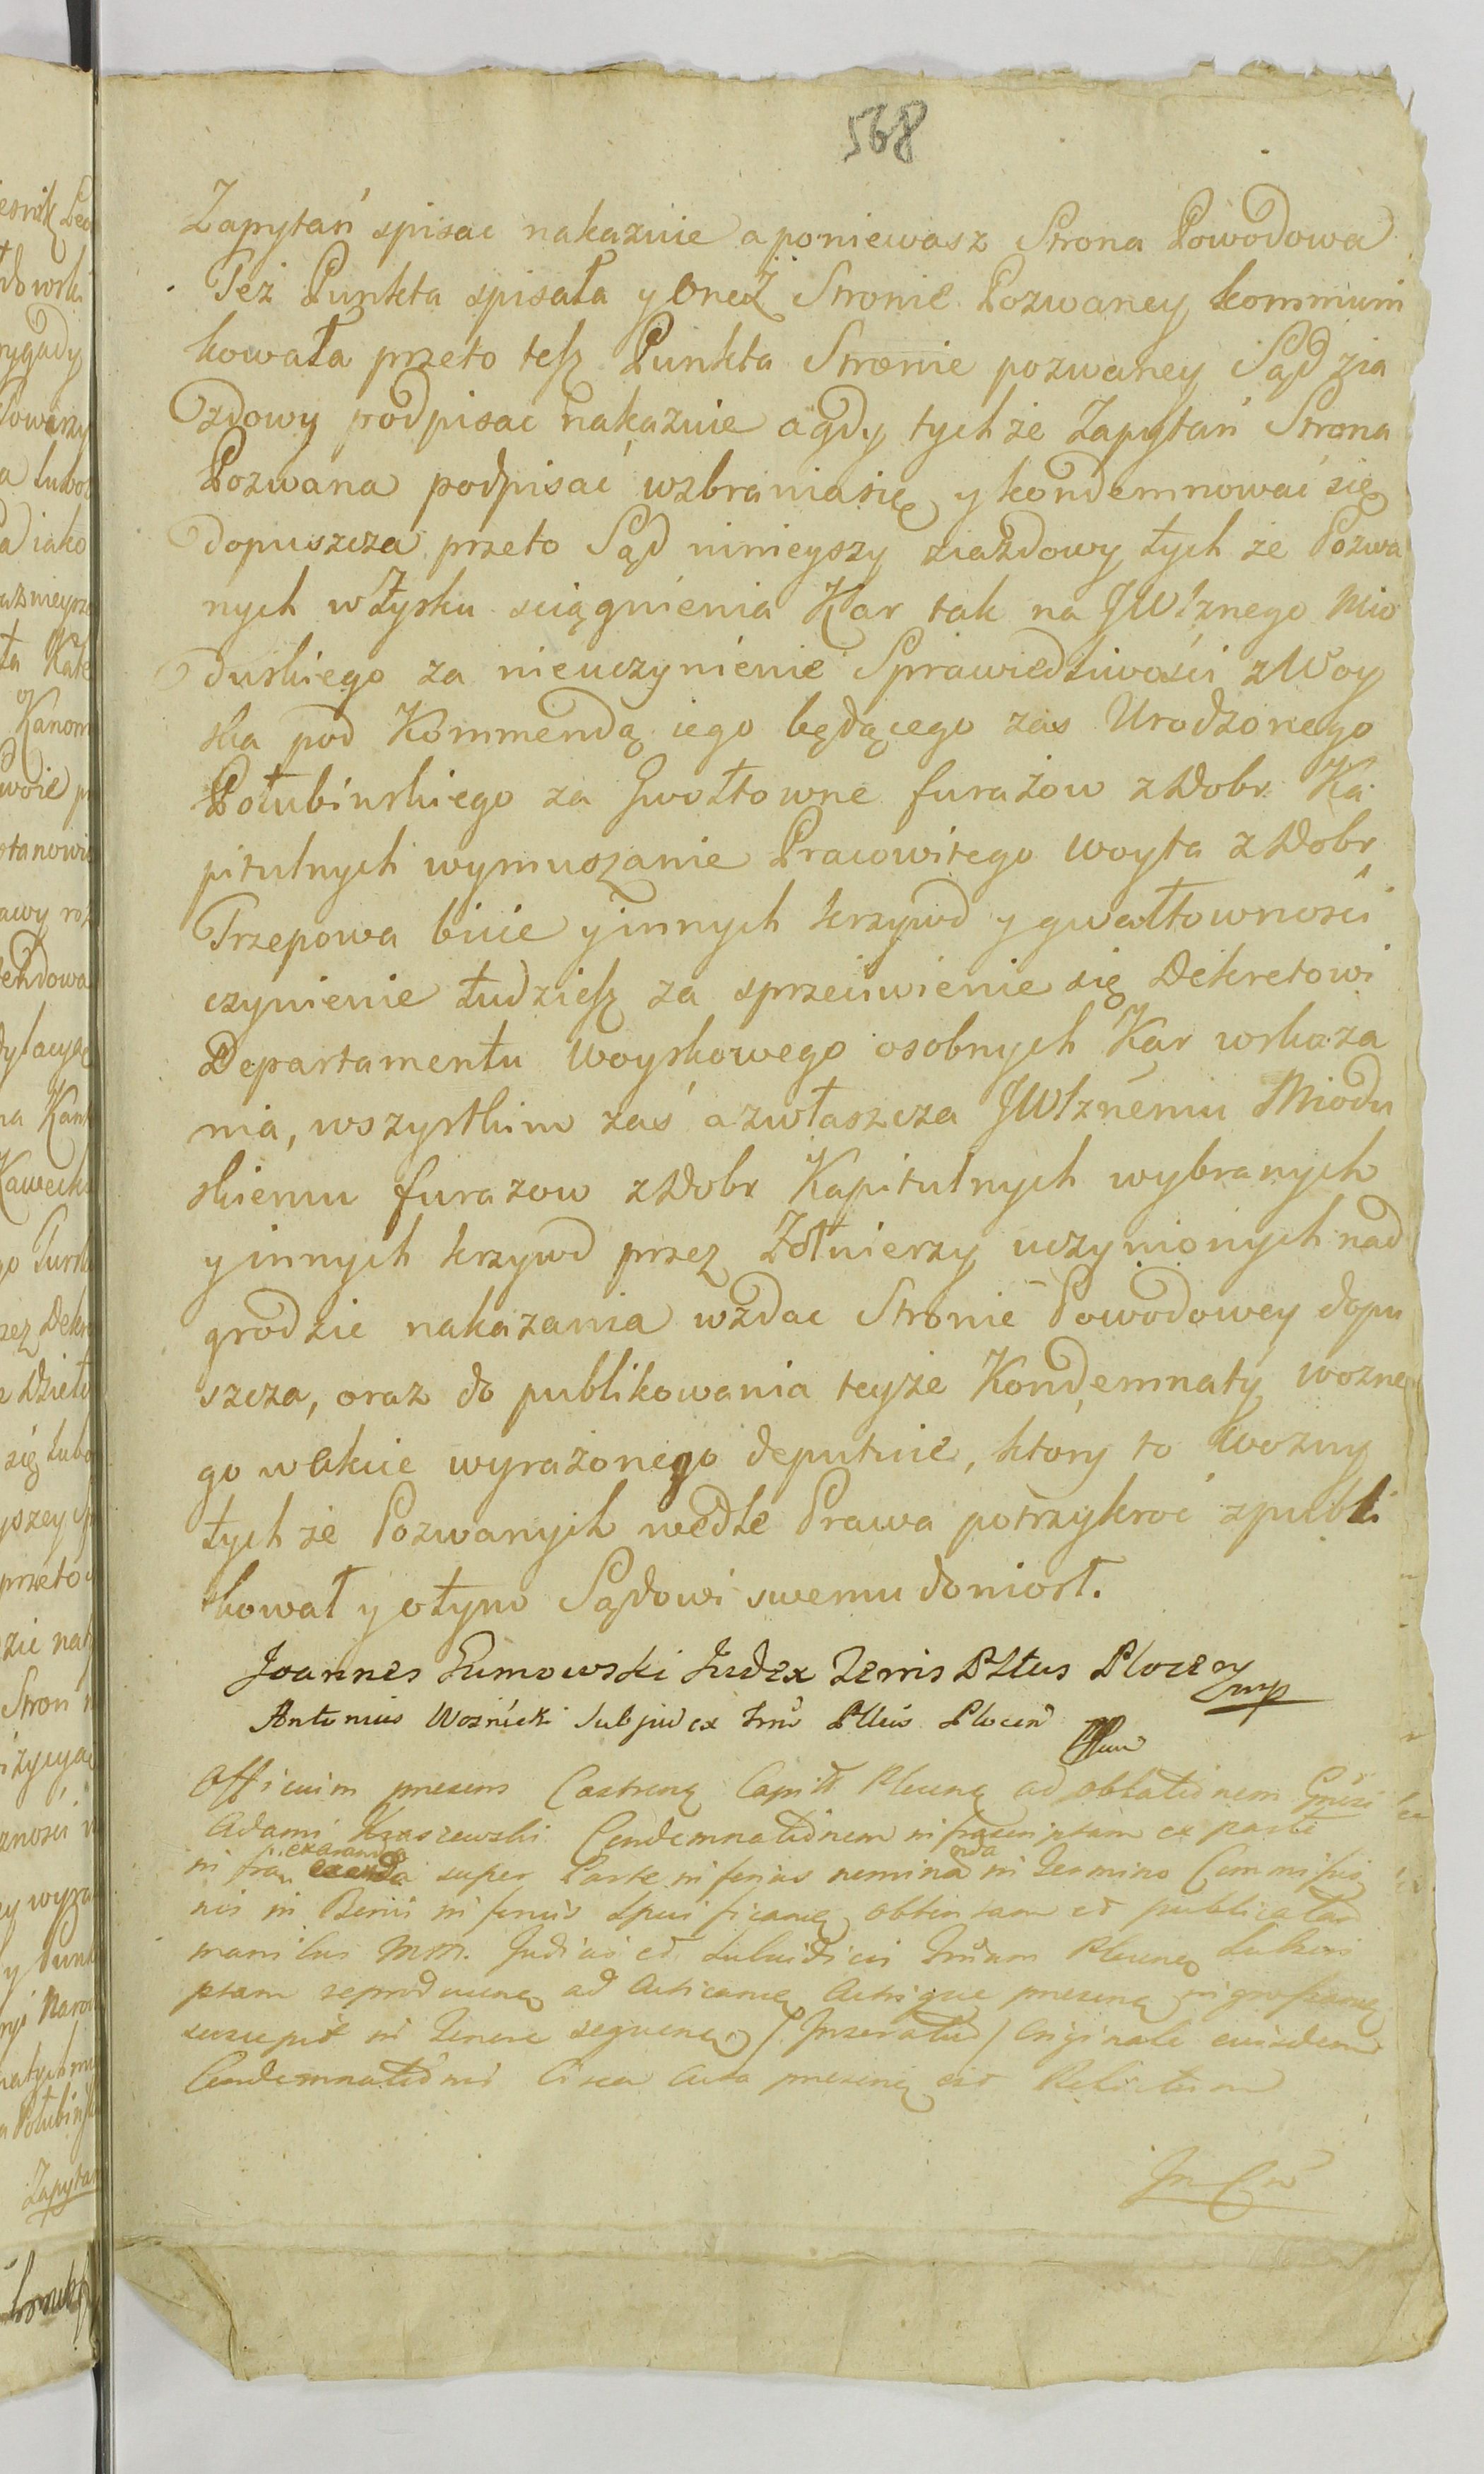 568
Zapytań spisac nakazuie a poniewasz Strona Powodowa
Też Punkta spisała y Oneż Stronie Pozwaney kommuni
kowała przeto tesz Punkta Stronie pozwaney Sąd zia
zdowy podpisac nakazuie a gdy tych że Zapytań Strona
Pozwana podpisać wzbrania się y kondemnować się
dopuszcza przeto Sąd ninieyszy ziazdowy tych że Pozwa
nych w Zysku sciągnienia Kar tak na JWżnego Mio
duskiego za nieuczynienie Sprawiedliwości z Woy
ska pod Kommendą iego będącego zas Urodzonego
Połubinskiego za Gwałtowne furażow z Dobr Ka
pitulnych wymuszanie Pracowitego Woyta z Dobr
Trzepowa bicie y innych krzywd y gwałtowności
czynienie tudziesz za sprzeciwienie się Dekretowi
Departamentu Woyskowego osobnych Kar wskaza
nia, wszystkim zaś a zwłaszcza JWżnemu Miodu
skiemu furazow z Dobr Kapitulnych wybranych
y innych krzywd przez Żołnierzy uczynionych nad
grodzic nakazania wzdac Stronie Powodowey dopu
szcza, oraz do publikowania teyże Kondemnaty wozne
go w akcie wyrażonego deputuie, ktory to Wozny
tych że Pozwanych wedle Prawa potrzykroć zpubli
kował y o tym Sądowi swemu doniosł.
Joannes Zumowski Judex Terris Pltus Plocen mp
Antonius Woznicki Subjudex Trris Pltus Plocen
Officium presens Castrens Capitt Plocens ad oblationem Gnrsi
Adami Kraszewski Condemnationem infrascriptam ex parte
infra exaranda super Parte inferius nominanda in Termino Commissio
nis in Bonis inferius specificando obtentam et publicatam
manibus Judicis et Subiudicis Plocens Subscri
ptam reproducens ad Acticand Actisque presens ingrossand
suscepit in Tenore sequens /: Inseratur / Originale euisdem
Condemnationis circa Acta presens est Relictum